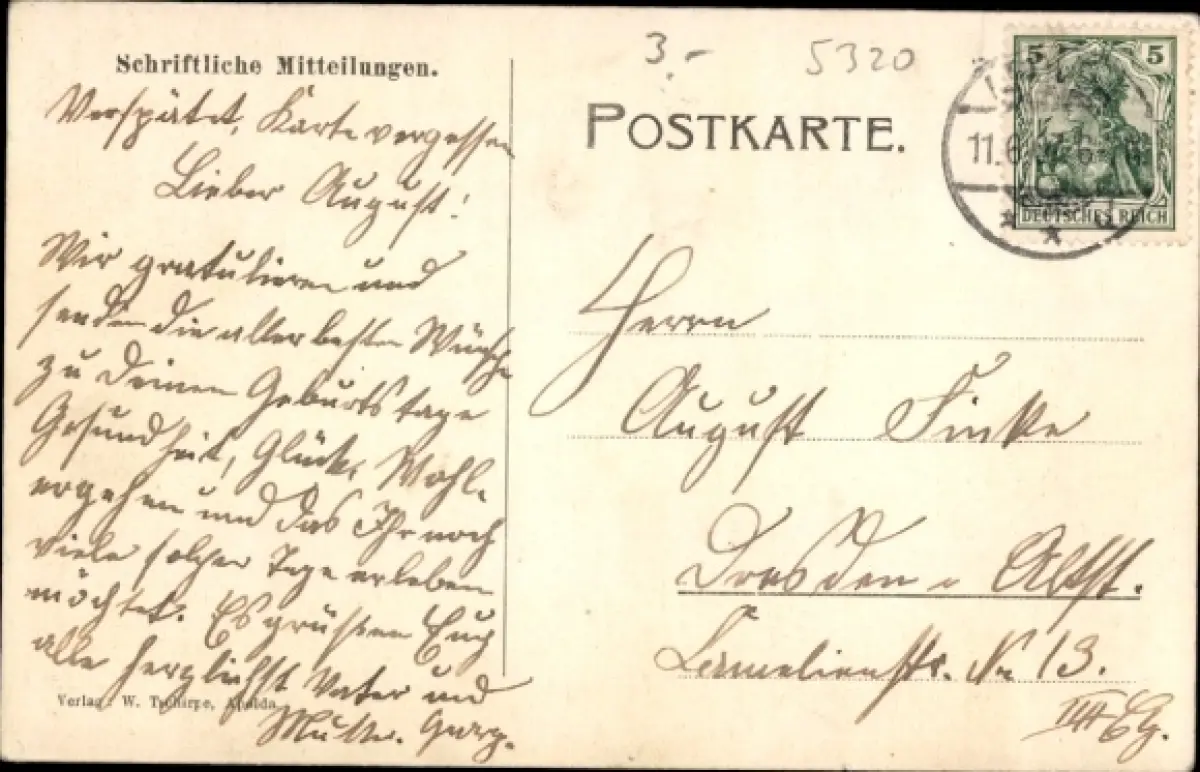 Schriftliche Mitteilungen.
Verspätet, Karte vergessen
Lieber August!
Wir gratulieren und
senden die aller besten Wünsche
zu Deinem Geburtstage
Gesundheit, Glück, Wohl-
ergehen und das Ihr noch
viele solcher Tage erleben
möchtet. Es grüßen Euch
alle herzlichst Vater und
Mutter.
Verlag: W. Tschirpe, Apolda
3.- 5320
POSTKARTE.
5 5
DEUTSCHES REICH
11.6
Herrn
August Finke
Dresden Altst.
Camelienstr. No 13.
III Etg.